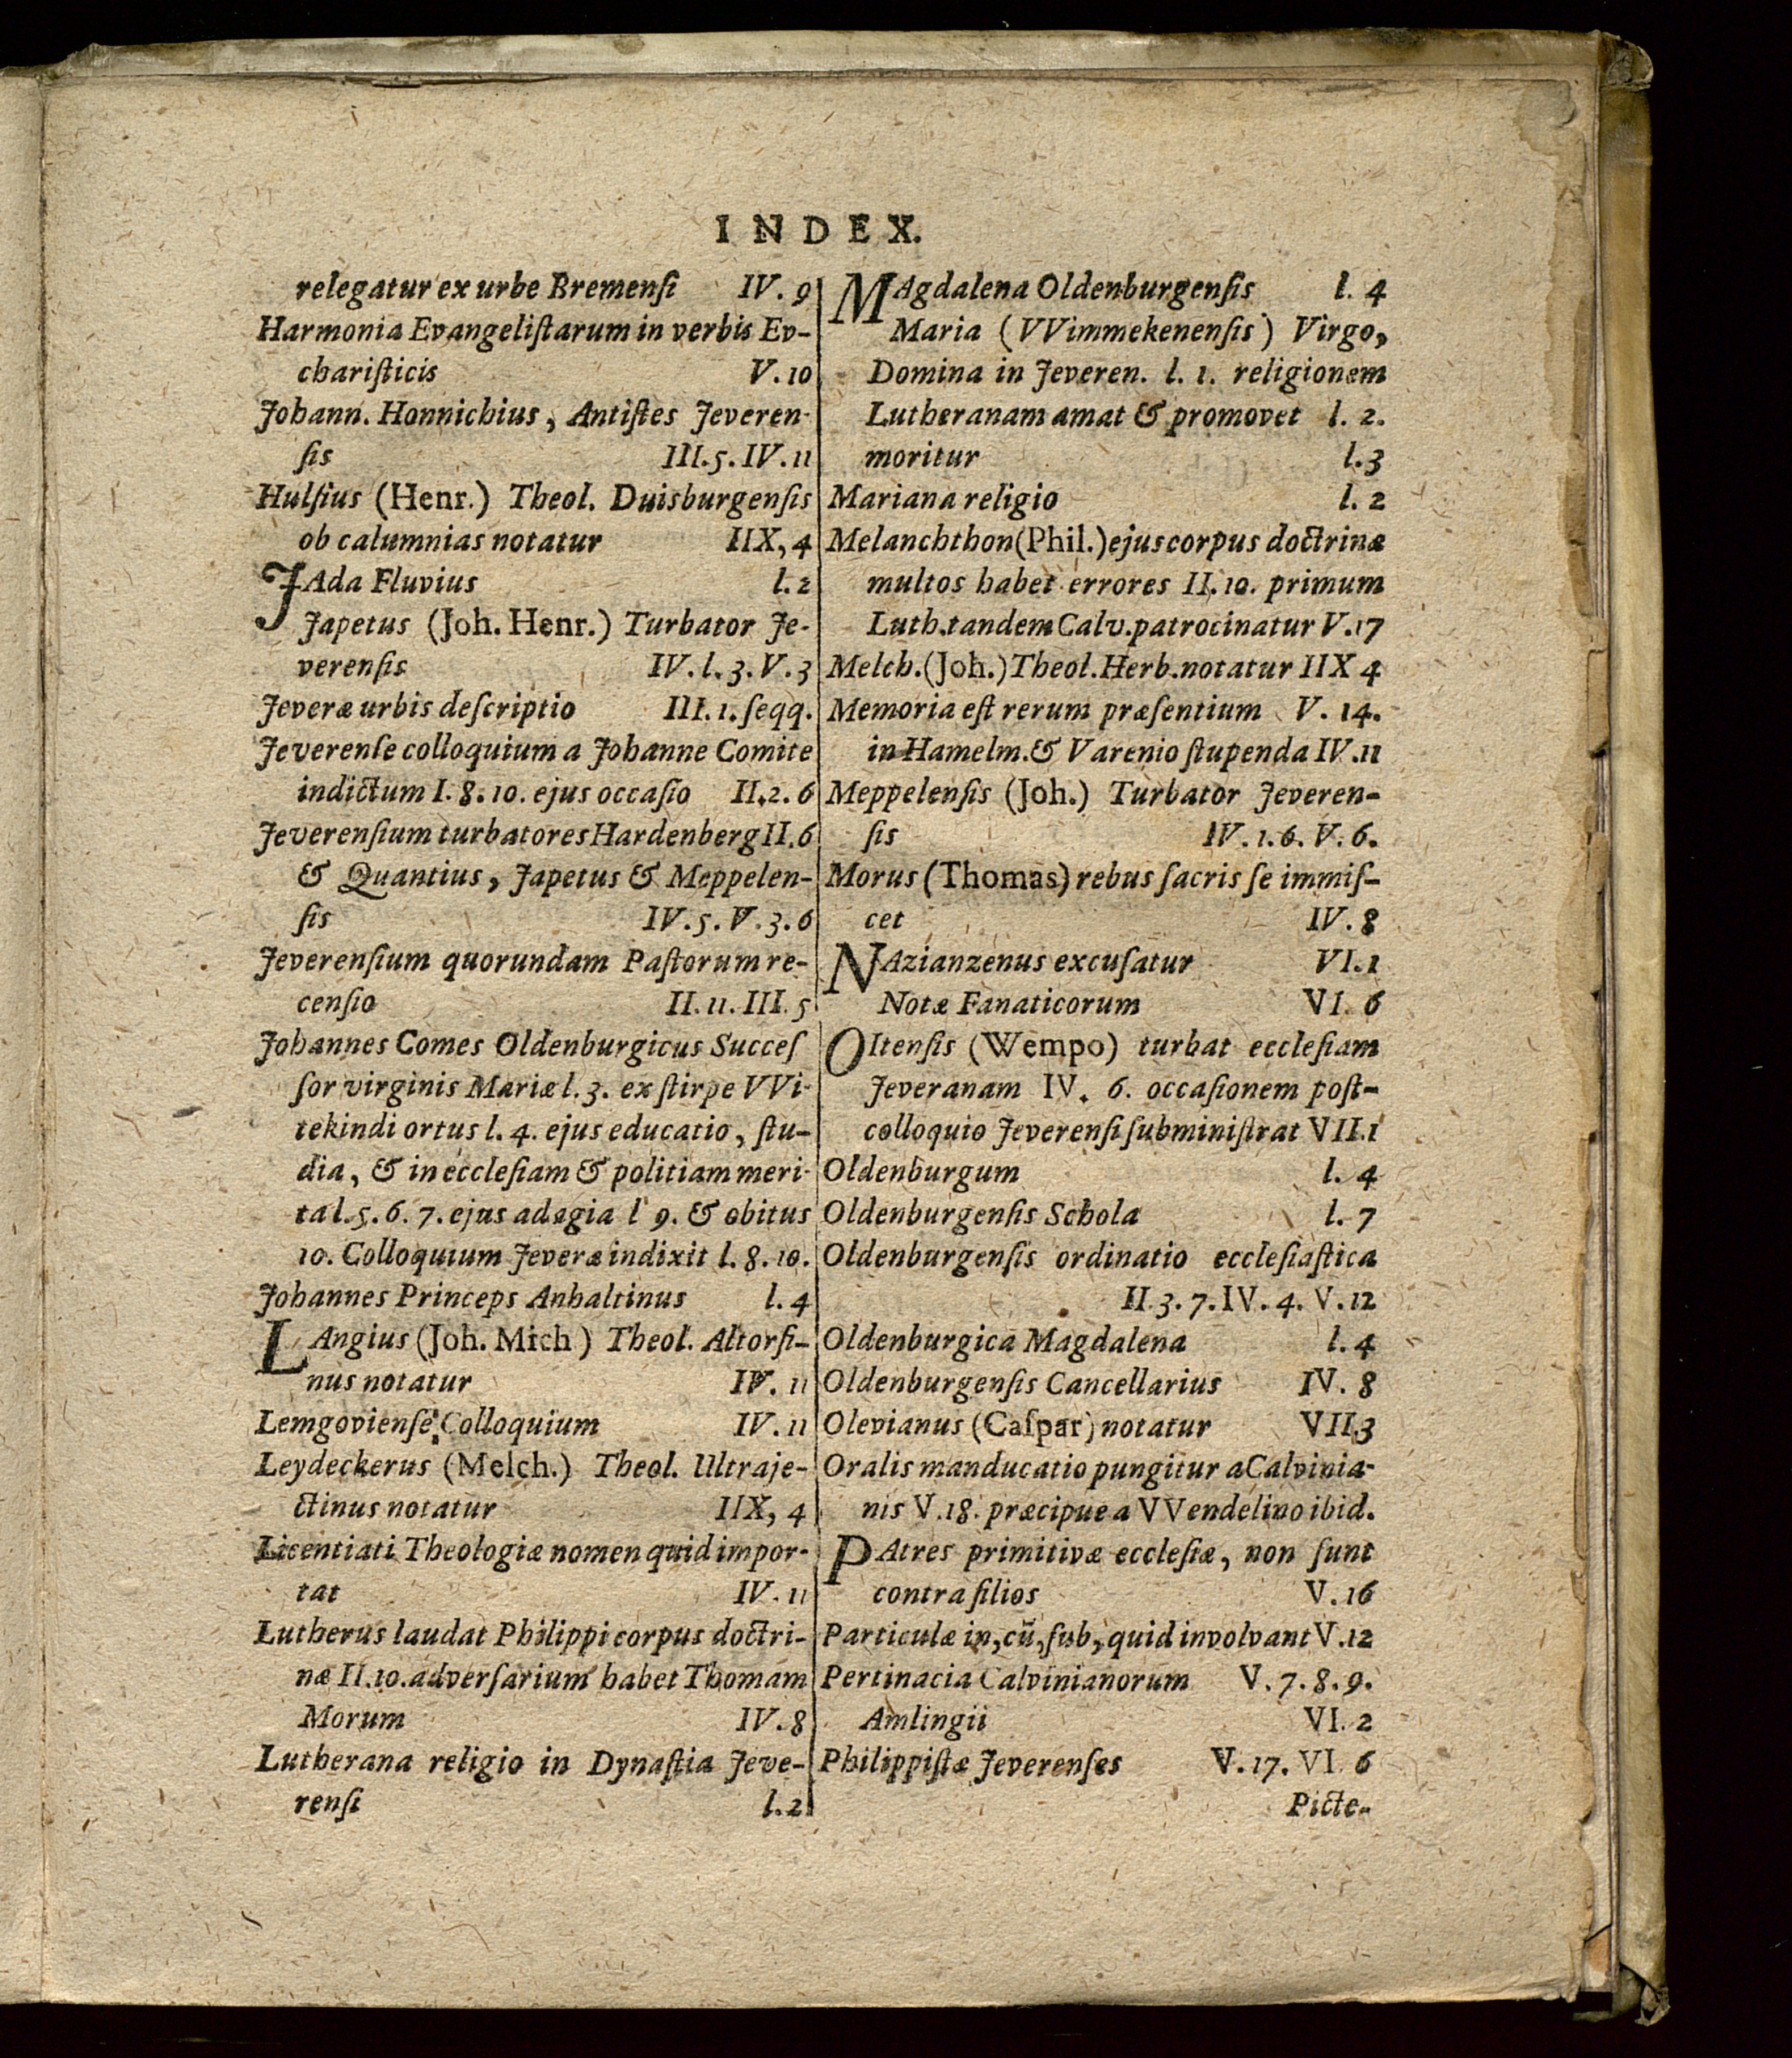 INDEX.
relegatur ex urbe Bremenſi IV. 9
Harmonia Evangeliſtarum in verbis Ev-
chariſticis V. 10
Johann. Honnichius, Antiſtes Jeveren-
ſis III. 5. IV. 11
Hulſius (Henr.) Theol. Duisburgenſis
ob calumnias notatur IIX, 4
JAda Fluvius l. 2
Japetus (Joh. Henr.) Turbator Je-
verenſis IV. l. 3. V. 3
Jeveræ urbis deſcriptio III. 1. ſeqq.
Jeverenſe colloquium a Johanne Comite
indictum I. 8. 10. ejus occaſio II. 2. 6
Jeverenſium turbatores Hardenberg II. 6
& Quantius, Japetus & Meppelen-
ſis IV. 5. V. 3. 6
Jeverenſium quorundam Paſtorum re-
cenſio II. 11. III. 5
Johannes Comes Oldenburgicus Succeſ
ſor virginis Mariæ l. 3. ex ſtirpe VVi-
tekindi ortus l. 4. ejus educatio, ſtu-
dia, & in eccleſiam & politiam meri-
ta l. 5. 6. 7. ejus adagia l 9. & obitus
10. Colloquium Jeveræ indixit l. 8. 10.
Johannes Princeps Anhaltinus l. 4
LAngius (Joh. Mich) Theol. Altorfi-
nus notatur IV. 11
Lemgovienſe Colloquium IV. 11
Leydeckerus (Melch.) Theol. Ultraje-
ctinus notatur IIX, 4
Licentiati Theologiæ nomen quid impor-
tat IV. 11
Lutherus laudat Philippi corpus doctri-
næ II. 10. adverſarium habet Thomam
Morum IV. 8
Lutherana religio in Dynaſtia Jeve-
renſi l. 2
MAgdalena Oldenburgenſis l. 4
Maria (VVimmekenenſis) Virgo,
Domina in Jeveren. l. 1. religionem
Lutheranam amat & promovet l. 2.
moritur l. 3
Mariana religio l. 2
Melanchthon (Phil.) ejus corpus doctrinæ
multos habet errores II. 10. primum
Luth. tandem Calv. patrocinatur V. 17
Melch. (Joh.) Theol. Herb. notatur IIX 4
Memoria eſt rerum præſentium V. 14.
in Hamelm. & Varenio ſtupenda IV. 11
Meppelenſis (Joh.) Turbator Jeveren-
ſis IV. 1. 6. V. 6.
Morus (Thomas) rebus ſacris ſe immiſ-
cet IV. 8
NAzianzenus excuſatur VI. 1
Notæ Fanaticorum VI. 6
OLtenſis (Wempo) turbat eccleſiam
Jeveranam IV. 6. occaſionem poſt-
colloquio Jeverenſi ſubminiſtrat VII. 1
Oldenburgum l. 4
Oldenburgenſis Schola l. 7
Oldenburgenſis ordinatio eccleſiaſtica
II. 3. 7. IV. 4. V. 12
Oldenburgica Magdalena l. 4
Oldenburgenſis Cancellarius IV. 8
Olevianus (Caſpar) notatur VII. 3
Oralis manducatio pungitur a Calvinia-
nis V. 18. præcipue a VVendelino ibid.
PAtres primitivæ eccleſiæ, non ſunt
contra filios V. 16
Particulæ in, cũ, ſub, quid involvant V. 12
Pertinacia Calvinianorum V. 7. 8. 9.
Amlingii VI. 2
Philippiſtæ Jeverenſes V. 17. VI. 6
Picte-